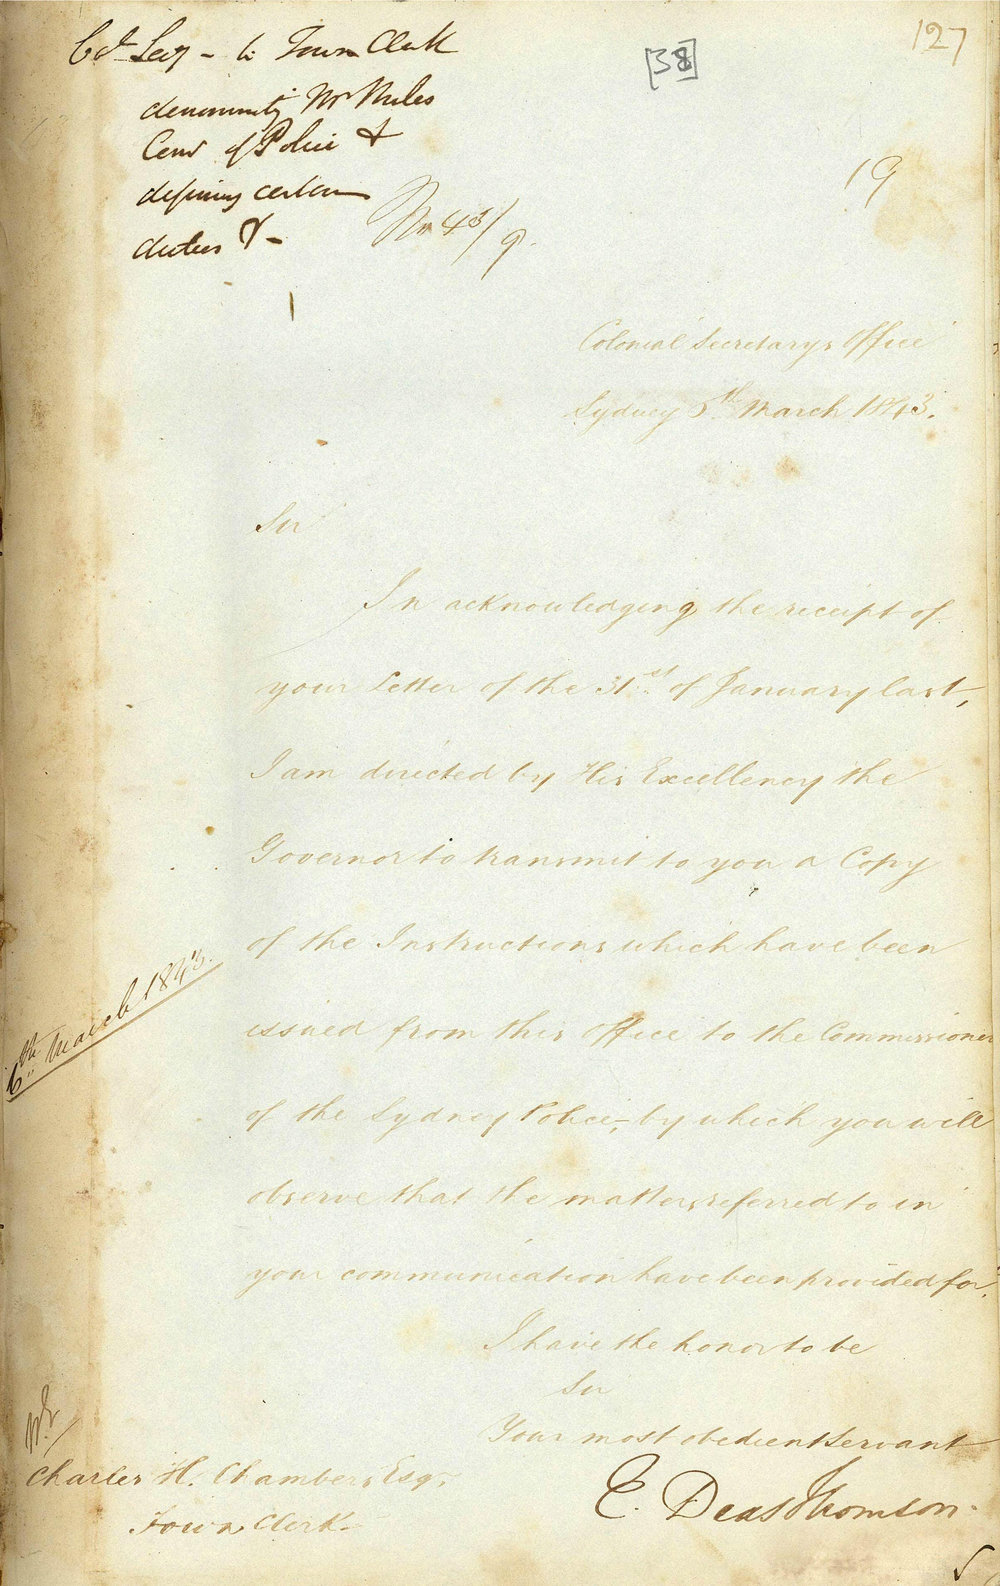 Col Secy - to Town Clerk
Mr Miles
Comr of Police &
defining certain
duties &-
No 43/9.
[38]
127
19
Colonial Secretarys Office
Sydney 6th March 1843.
Sir
In acknowledging the receipt of
your Letter of the 31st of January last,
I am directed by His Excellency the
Governor to transmit to you a Copy
of the Instructions which have been
issued from this Office to the Commissioner
of the Sydney Police, by which you will
observe that the matters referred to in
your communication have been provided for.
I have the honor to be
Sir
Your most obedient Servant
E. Deas Thomson.
6th March 1843.
Charles H. Chambers Esqr.
Town Clerk